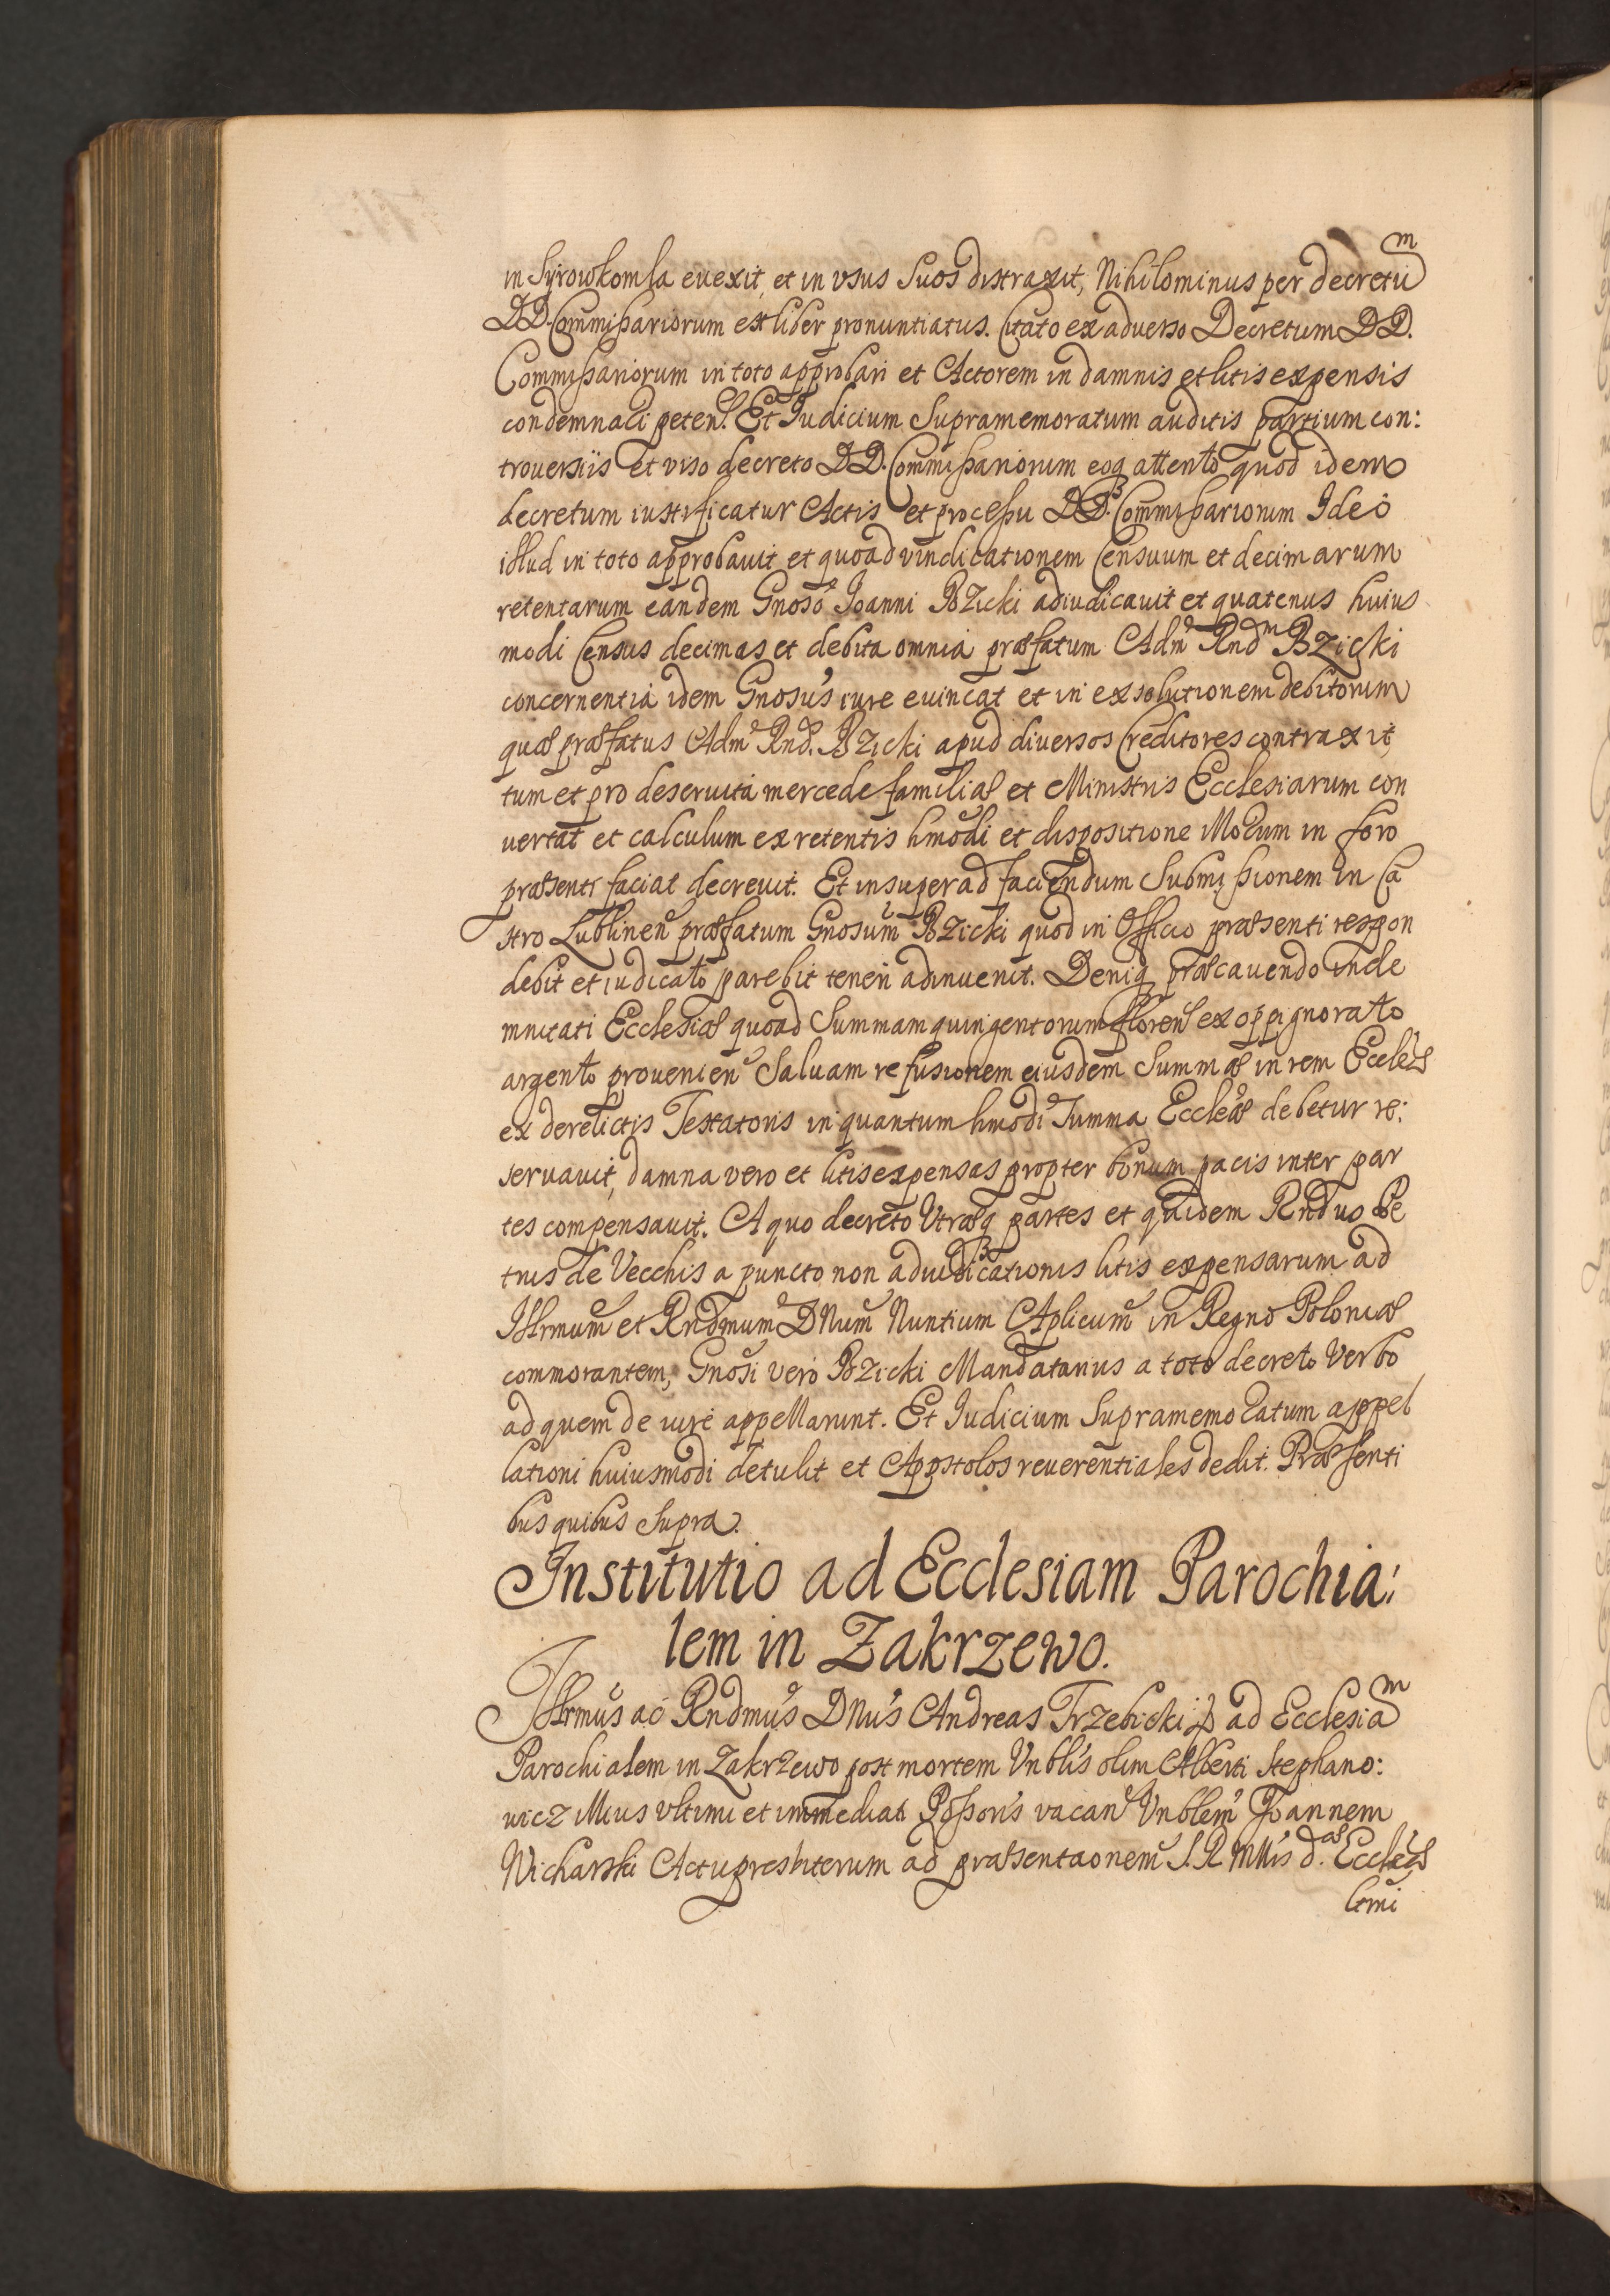 in Syrowkomla euexit, et in vsus suos distraxit, Nihilominus per decretu͠m
DD. Commißariorum est liber pronuntiatus. Citato ex aduerso Decretum DD.
Commißariorum in toto approbari et Actorem in damnis et litis expensis
condemnari peten. Et Iudicium Supramemoratum auditis partium con:
trouersiis et viso decreto DD. Commißariorum eoq attento quod idem
decretum iustificatur Actis et proceßu DD. Commißariorum Ideo
illud in toto approbauit et quoad vindicationem Censuum et decimarum
retentarum eandem Gnoso Ioanni Bzicki adiudicauit et quatenus huius
modi Census decimas et debita omnia præfatum Adm Rndm Bzicki
concernentia idem Gnosus iure euincat et in exsolutionem debitorum
quæ præfatus Adm Rnd. Bzicki apud diuersos Creditores contraxit,
tum et pro deseruita mercede familiæ et Ministris Ecclesiarum con
uertat et calculum ex retentis hmodi et dispositione illorum in foro
præsenti faciat decreuit. Et insuper ad faciendum Submißionem in Ca
stro Lublinen præfatum Gnosum Bzicki quod in Officio præsenti respon
debit et iudicato parebit teneri adinuenit. Deniq præcauendo inde
mnitati Ecclesiæ quoad Summam quingentorum floren ex oppignorato
argento prouenien Saluam refusionem eiusdem Summæ in rem Eccleæ
ex derelictis Testatoris in quantum hmodi Summa Eccleæ debetur re:
seruauit, damna vero et litis expensas propter bonum pacis inter par
tes compensauit. A quo decreto Vtræq partes et quidem Rndus Pe
trus de Vecchis a puncto non adiudicationis litis expensarum ad
Illrmum et Rndmum DNum Nuntium Aplicum in Regno Poloniæ
commorantem, Gnosi vero Bzicki Mandatarius a toto decreto Verbo
ad quem de iure appellarunt. Et Iudicium Supramemoratum appel
lationi huiusmodi detulit et Apostolos reuerentiales dedit. Præsenti
bus quibus supra.
Institutio ad Ecclesiam Parochia:
lem in Zakrzewo.
Illrmus ac Rndmus DNus Andreas Trzebicki Ep ad Ecclesiam
Parochialem in Zakrzewo post mortem Vnblis olim Alberti Stephano:
wicz illius vltimi et immediati Poßoris vacan Vnblem Joannem
Wicharski Actupresbiterum ad præsentaonem S. R. Mttis d. Eccleæ
ltmi